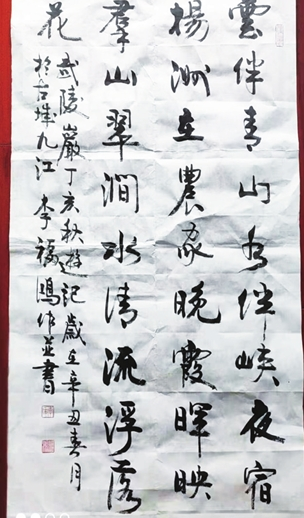 雲伴青山水伴峽夜宿
楊洲在農家晚霞暉映
羣山翠澗水清流浮落
花 武陵巖丁亥秋遊記歲在辛丑春月
於古珠九江 李福鴻作並書